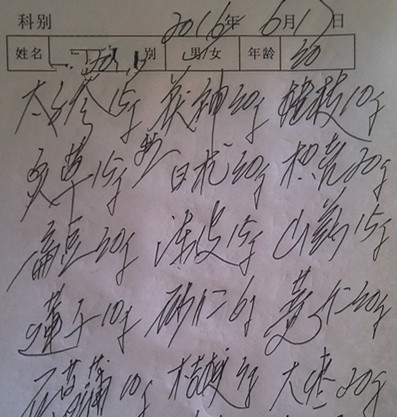 科别 2016年6月1日
姓名 别 男/女 年龄 30
太子参15g 茯神30g 桂枝10g
炙草15g 白术30g 枳壳20g
扁豆30g 陈皮15g 山药15g
莲子10g 砂仁6g 苡仁30g
石菖蒲10g 桔梗 大枣20g